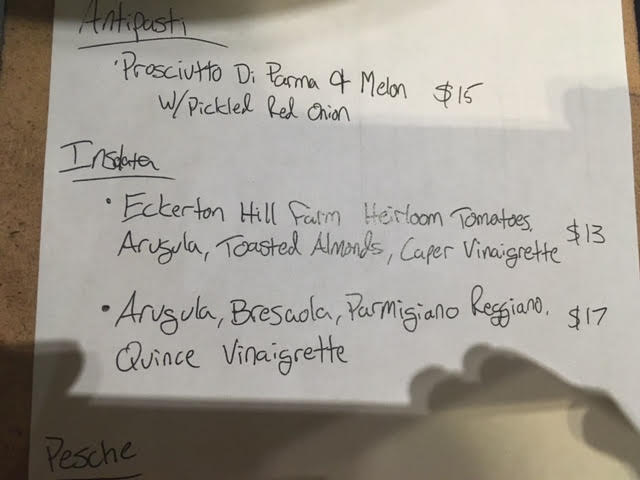 Antipasti
· Prosciutto Di Parma & Melon $15
W/Pickled Red Onion
Insdata
· Eckerton Hill Farm Heirloom Tomatoes, $13
Arugula, Toasted Almonds, Caper Vinaigrette
· Arugula, Bresaola, Parmigiano Reggiano, $17
Quince Vinaigrette
Pesche